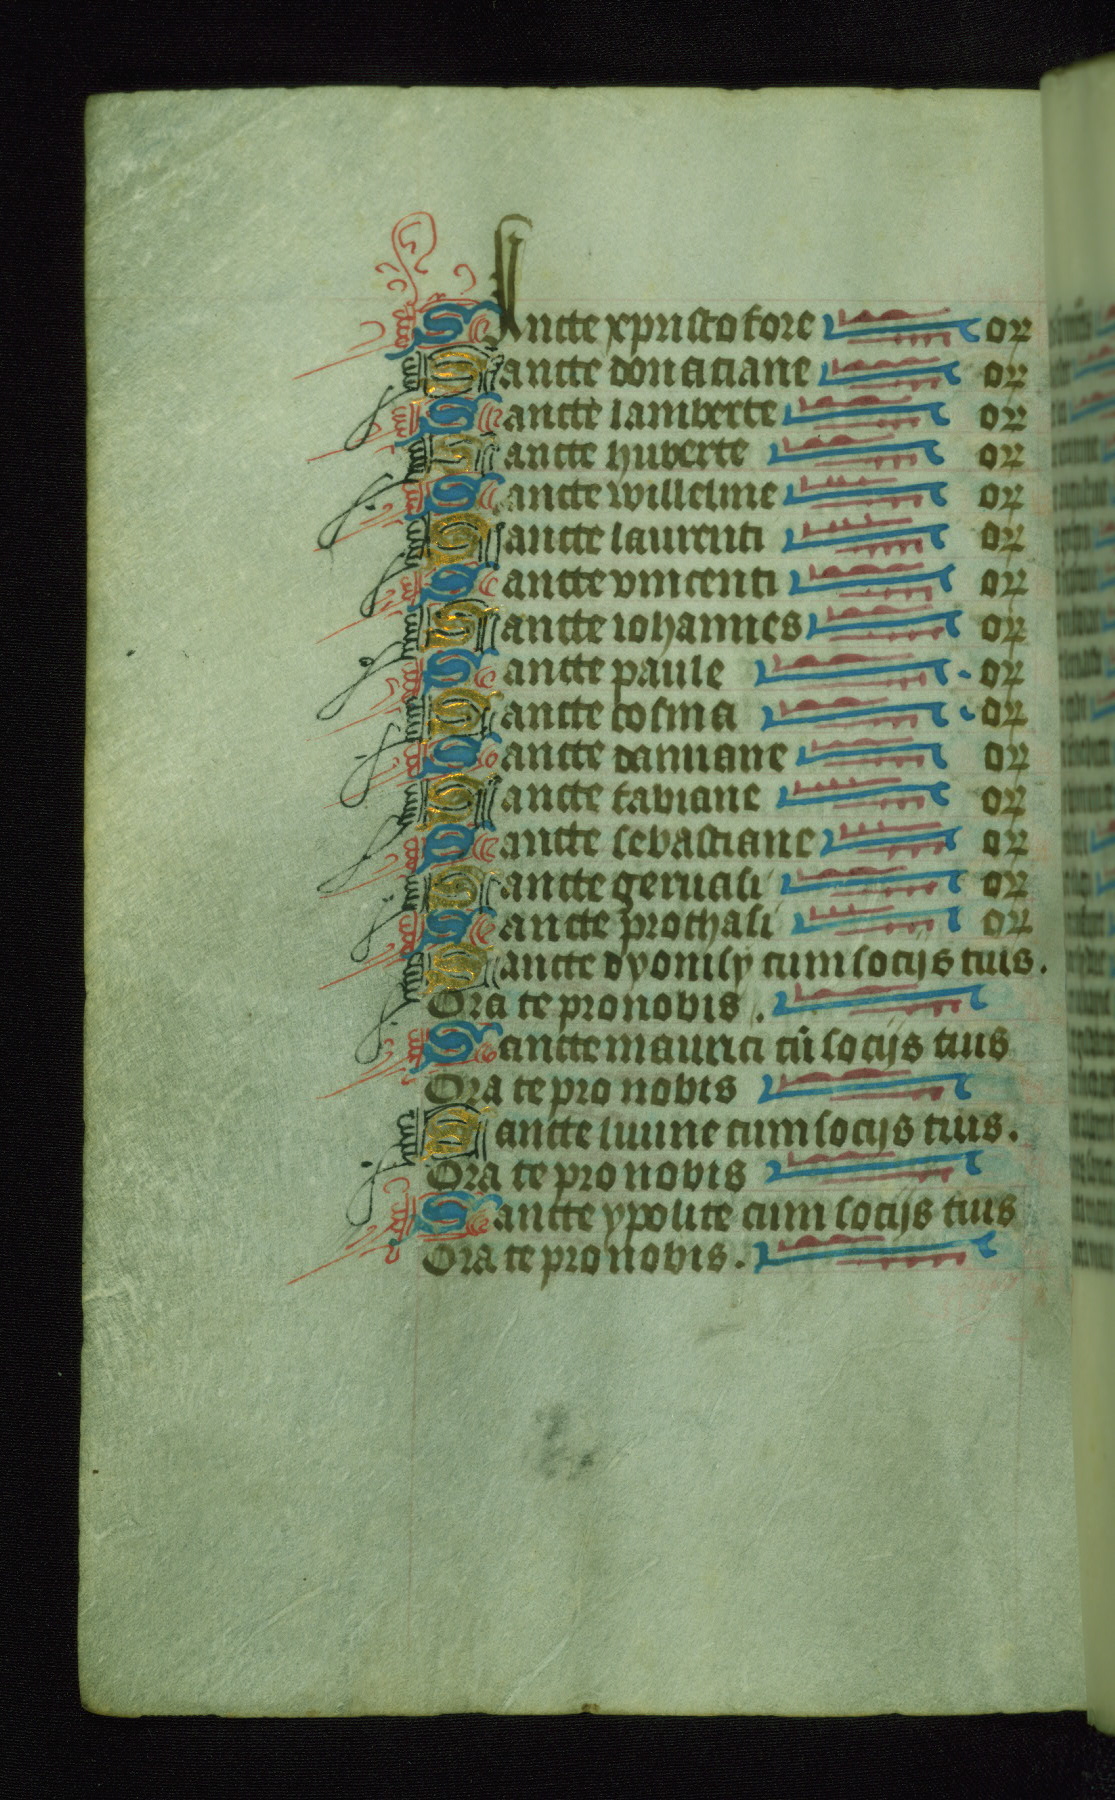 SAncte xpristofore or
Sancte donaciane or
Sancte lamberte or
Sancte huberte or
Sancte willelme or
Sancte laurenti or
Sancte vincenti or
Sancte iohannes or
Sancte paule or
Sancte cosma or
Sancte damiane or
Sancte fabiane or
Sancte sebastiane or
Sancte geruasi or
Sancte prothasi or
Sancte dyonisy cum socijs tuis.
Ora te pro nobis.
Sancte maurici cū socijs tuis
Ora te pro nobis
Sancte cum socijs tuis.
Ora te pro nobis
Sancte ypolite cum socijs tuis
Ora te pro nobis.